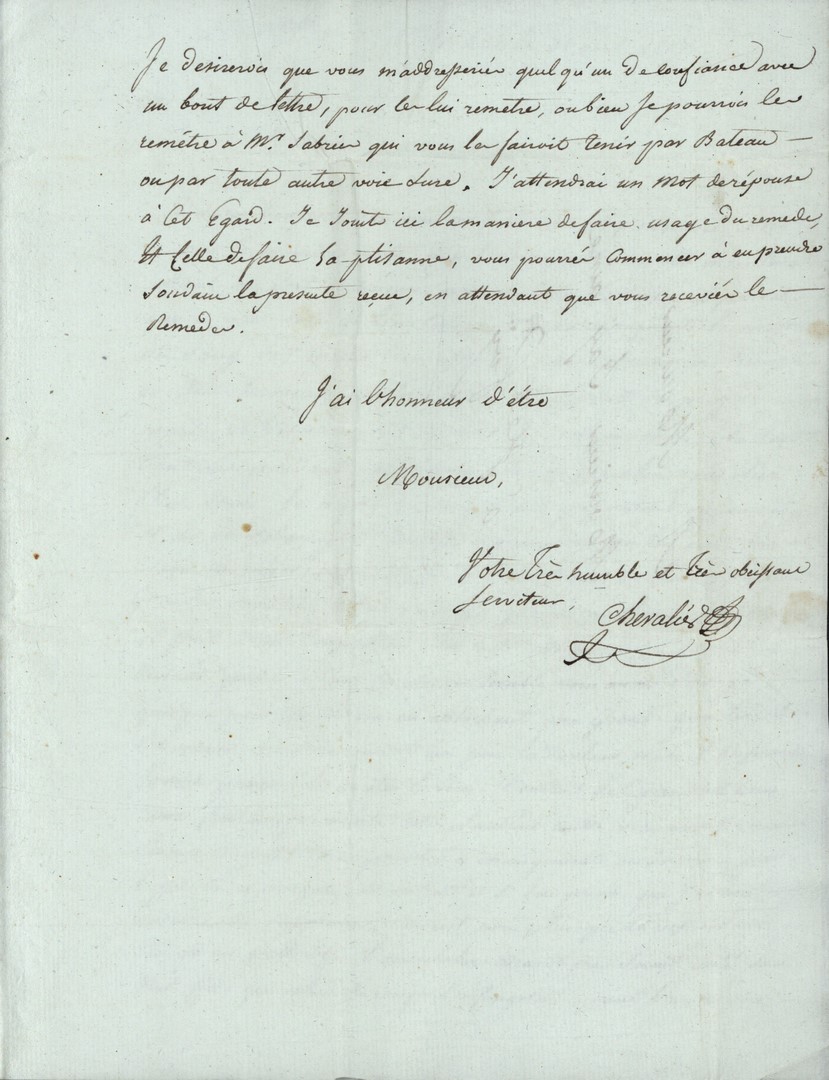 Je desirerois que vous m'addressiés quelqu'un de Confiance avec
un bout de lettre, pour les lui remettre, ou bien Je pourrois les
remettre à Mr. Sabrier qui vous les fairoit Tenir par Bateau —
ou par toute autre voie sure. J'attendrai un Mot de réponse
à Cet Egard. Je Joint ici la maniere de faire usage du remede,
Et Celle de faire La ptisanne, vous pourrés Commencer à en prendre
Soudain la presente reçue, en attendant que vous receviés le —
Remede.
J'ai l'honneur d'étre
Monsieur,
Votre Très humble et très obeissant
Serviteur,
Chevalier